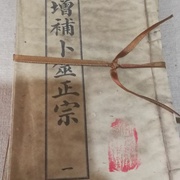 增補卜筮正宗
一